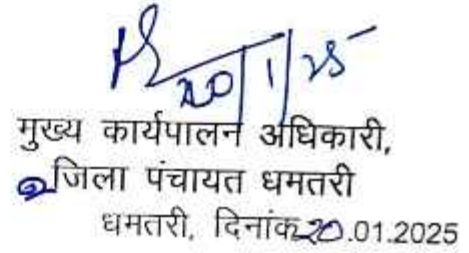 20/1/25
मुख्य कार्यपालन अधिकारी,
जिला पंचायत धमतरी
धमतरी, दिनांक 20.01.2025